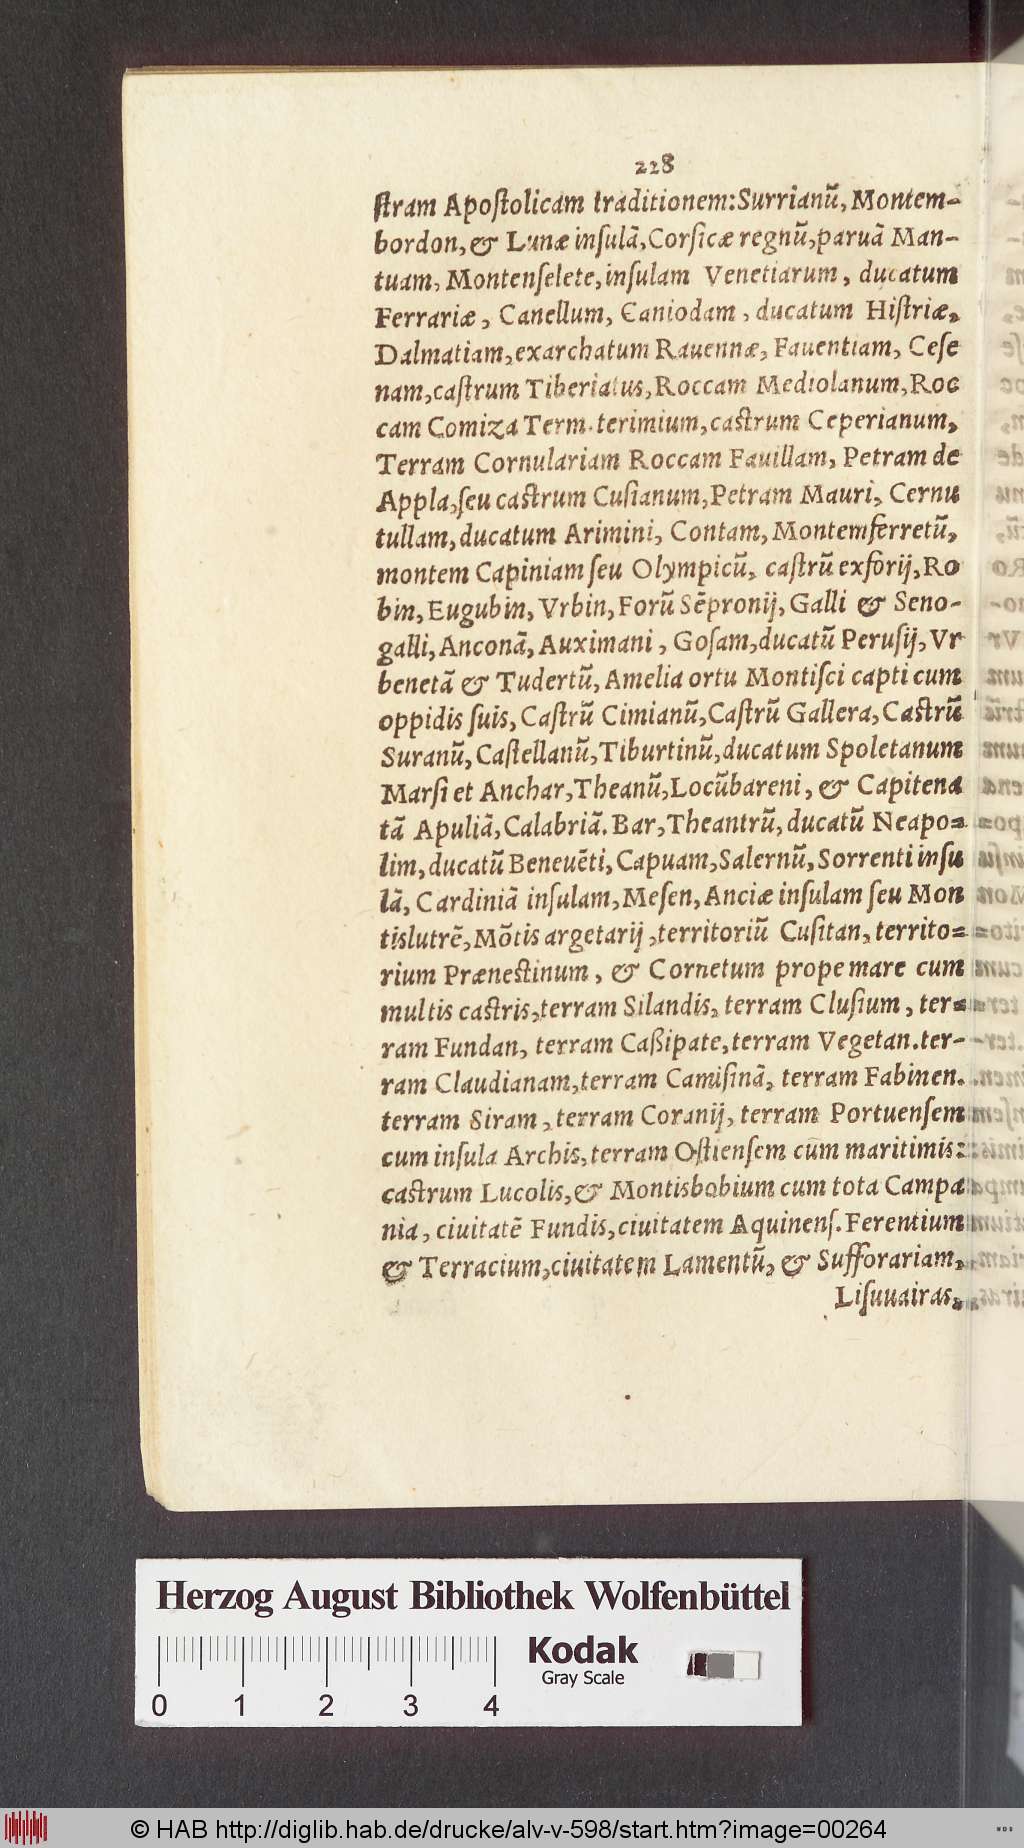 228
ſtram Apoſtolicam traditionem: Surrianũ, Montem-
bordon, & Lunæ inſulã, Corſicæ regnũ, paruã Man-
tuam, Montenſelete, inſulam Venetiarum, ducatum
Ferrariæ, Canellum, Caniodam, ducatum Hiſtriæ,
Dalmatiam, exarchatum Rauennæ, Fauentiam, Ceſe
nam, caſtrum Tiberiatus, Roccam Mediolanum, Roc
cam Comiza Term. terimium, caſtrum Ceperianum,
Terram Cornulariam Roccam Fauillam, Petram de
Appla, ſeu caſtrum Cuſianum, Petram Mauri, Cernu
tullam, ducatum Arimini, Contam, Montemferretũ,
montem Capiniam ſeu Olympicũ, caſtrũ exforij, Ro
bin, Eugubin, Vrbin, Forũ Sẽpronij, Galli & Seno-
galli, Anconã, Auximani, Goſam, ducatũ Peruſij, Vr
benetã & Tudertũ, Amelia ortu Montiſci capti cum
oppidis ſuis, Caſtrũ Cimianũ, Caſtrũ Gallera, Caſtrũ
Suranũ, Caſtellanũ, Tiburtinũ, ducatum Spoletanum
Marſi et Anchar, Theanũ, Locũbareni, & Capitena
tã Apuliã, Calabriã. Bar, Theantrũ, ducatũ Neapo=
lim, ducatũ Beneuẽti, Capuam, Salernũ, Sorrenti inſu
lã, Cardiniã inſulam, Meſen, Anciæ inſulam ſeu Mon
tislutrẽ, Mõtis argetarij, territoriũ Cuſitan, territo=
rium Præneſtinum, & Cornetum prope mare cum
multis caſtris, terram Silandis, terram Cluſium, ter=
ram Fundan, terram Caßipate, terram Vegetan. ter-
ram Claudianam, terram Camiſinã, terram Fabinen.
terram Siram, terram Coranij, terram Portuenſem
cum inſula Archis, terram Oſtienſem cum maritimis:
caſtrum Lucolis, & Montisbobium cum tota Campa
nia, ciuitatẽ Fundis, ciuitatem Aquinenſ. Ferentium
& Terracium, ciuitatem Lamentũ, & Sufforariam,
Liſuuairas,
Herzog August Bibliothek Wolfenbüttel
Kodak
Gray Scale
0 1 2 3 4
© HAB http://diglib.hab.de/drucke/alv-v-598/start.htm?image=00264